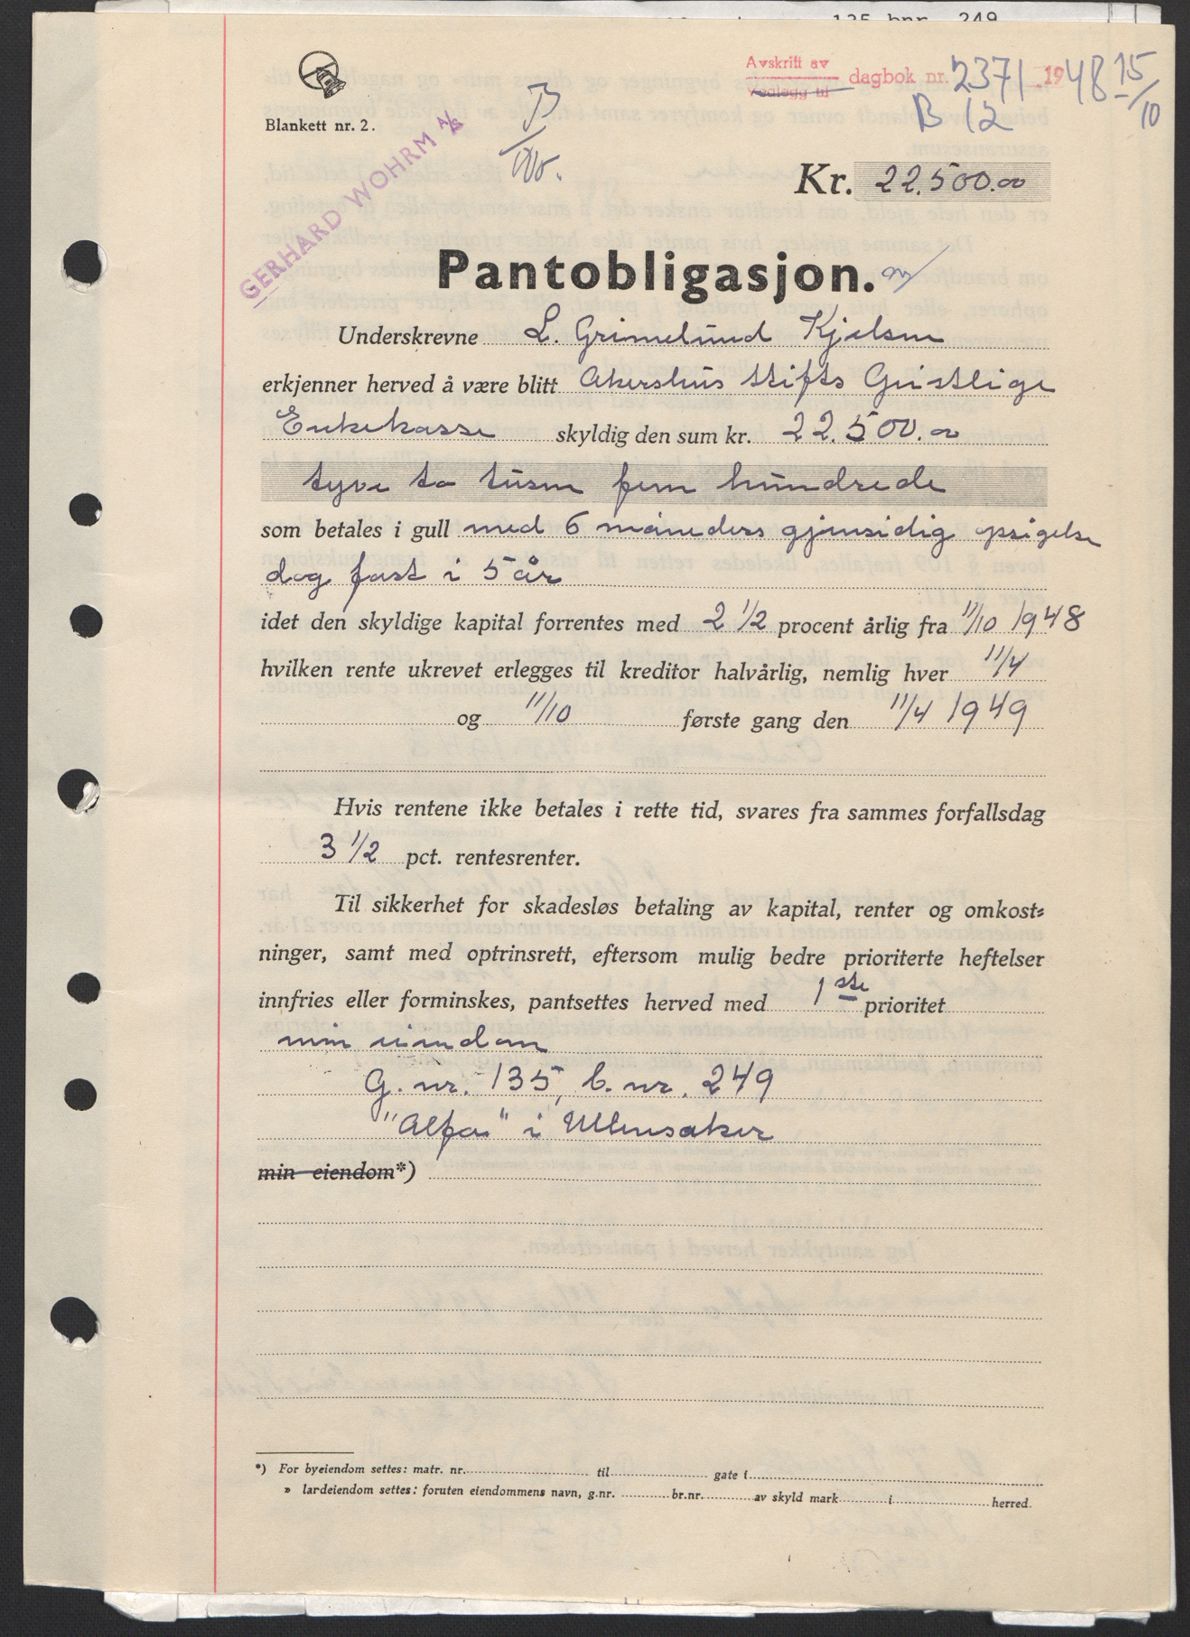 135 bnr. 249
Avskrift av
Vedlegg til dagbok nr. 2371 1948 15/10
B 12
Blankett nr. 2.
GERHARD WOHRM A/S
Kr. 22.500.00
Pantobligasjon.
Underskrevne L. Grimelund Kjelsen
erkjenner herved å være blitt Akershus Stifts Geistlige
Enkekasse skyldig den sum kr. 22.500.00
tyve to tusen fem hundrede
som betales i gull med 6 måneders gjensidig opsigelse
dog fast i 5 år
idet den skyldige kapital forrentes med 2 1/2 procent årlig fra 11/10 1948
hvilken rente ukrevet erlegges til kreditor halvårlig, nemlig hver 11/4
og 11/10 første gang den 11/4 1949
Hvis rentene ikke betales i rette tid, svares fra sammes forfallsdag
3 1/2 pct. rentesrenter.
Til sikkerhet for skadesløs betaling av kapital, renter og omkost-
ninger, samt med optrinsrett, eftersom mulig bedre prioriterte heftelser
innfries eller forminskes, pantsettes herved med 1ste prioritet
min eiendom
G. nr. 135, b. nr. 249
"Alfa" i Ullensaker
min eiendom*)
*) For byeiendom settes: matr. nr. til gate i
» lardeiendom settes: foruten eiendommens navn, g.nr. br.nr. av skyld mark i herred.